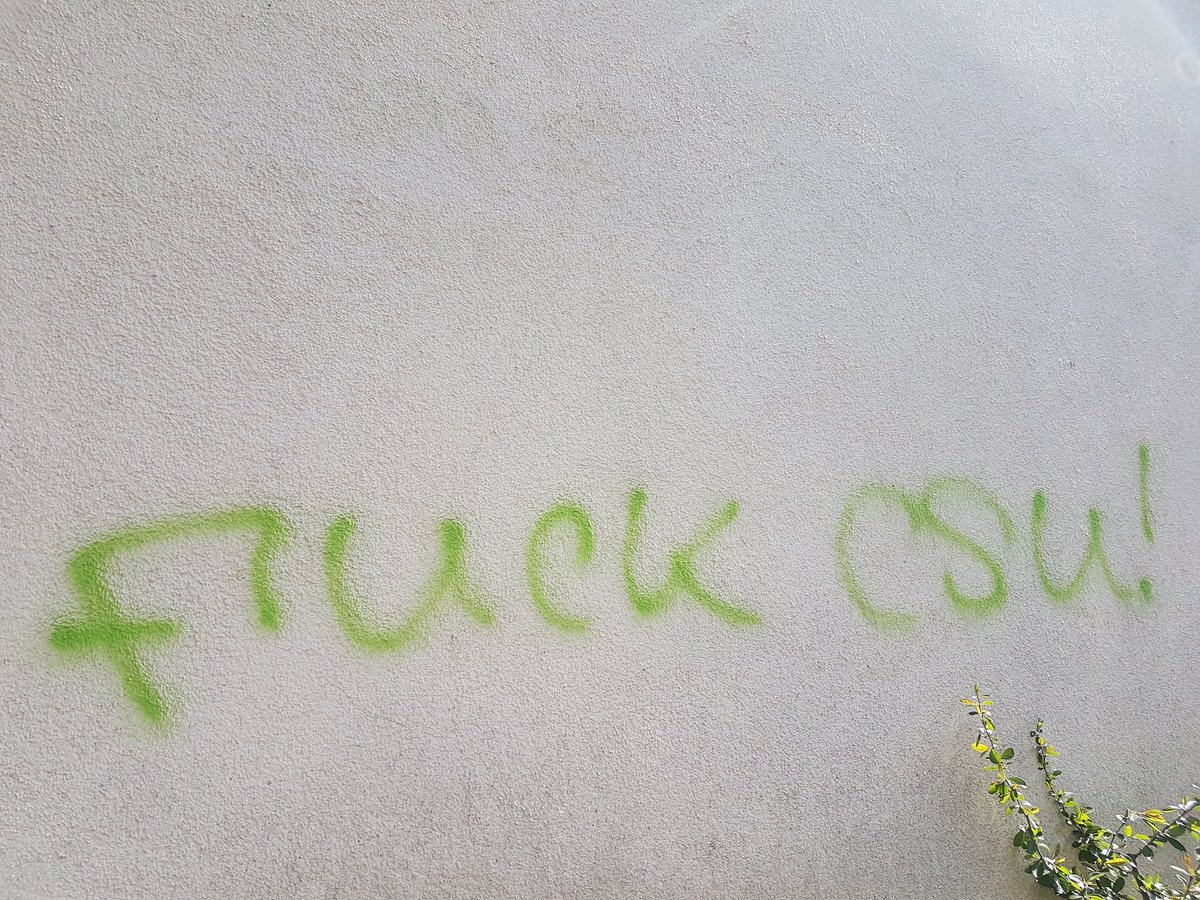 Fuck CSU!